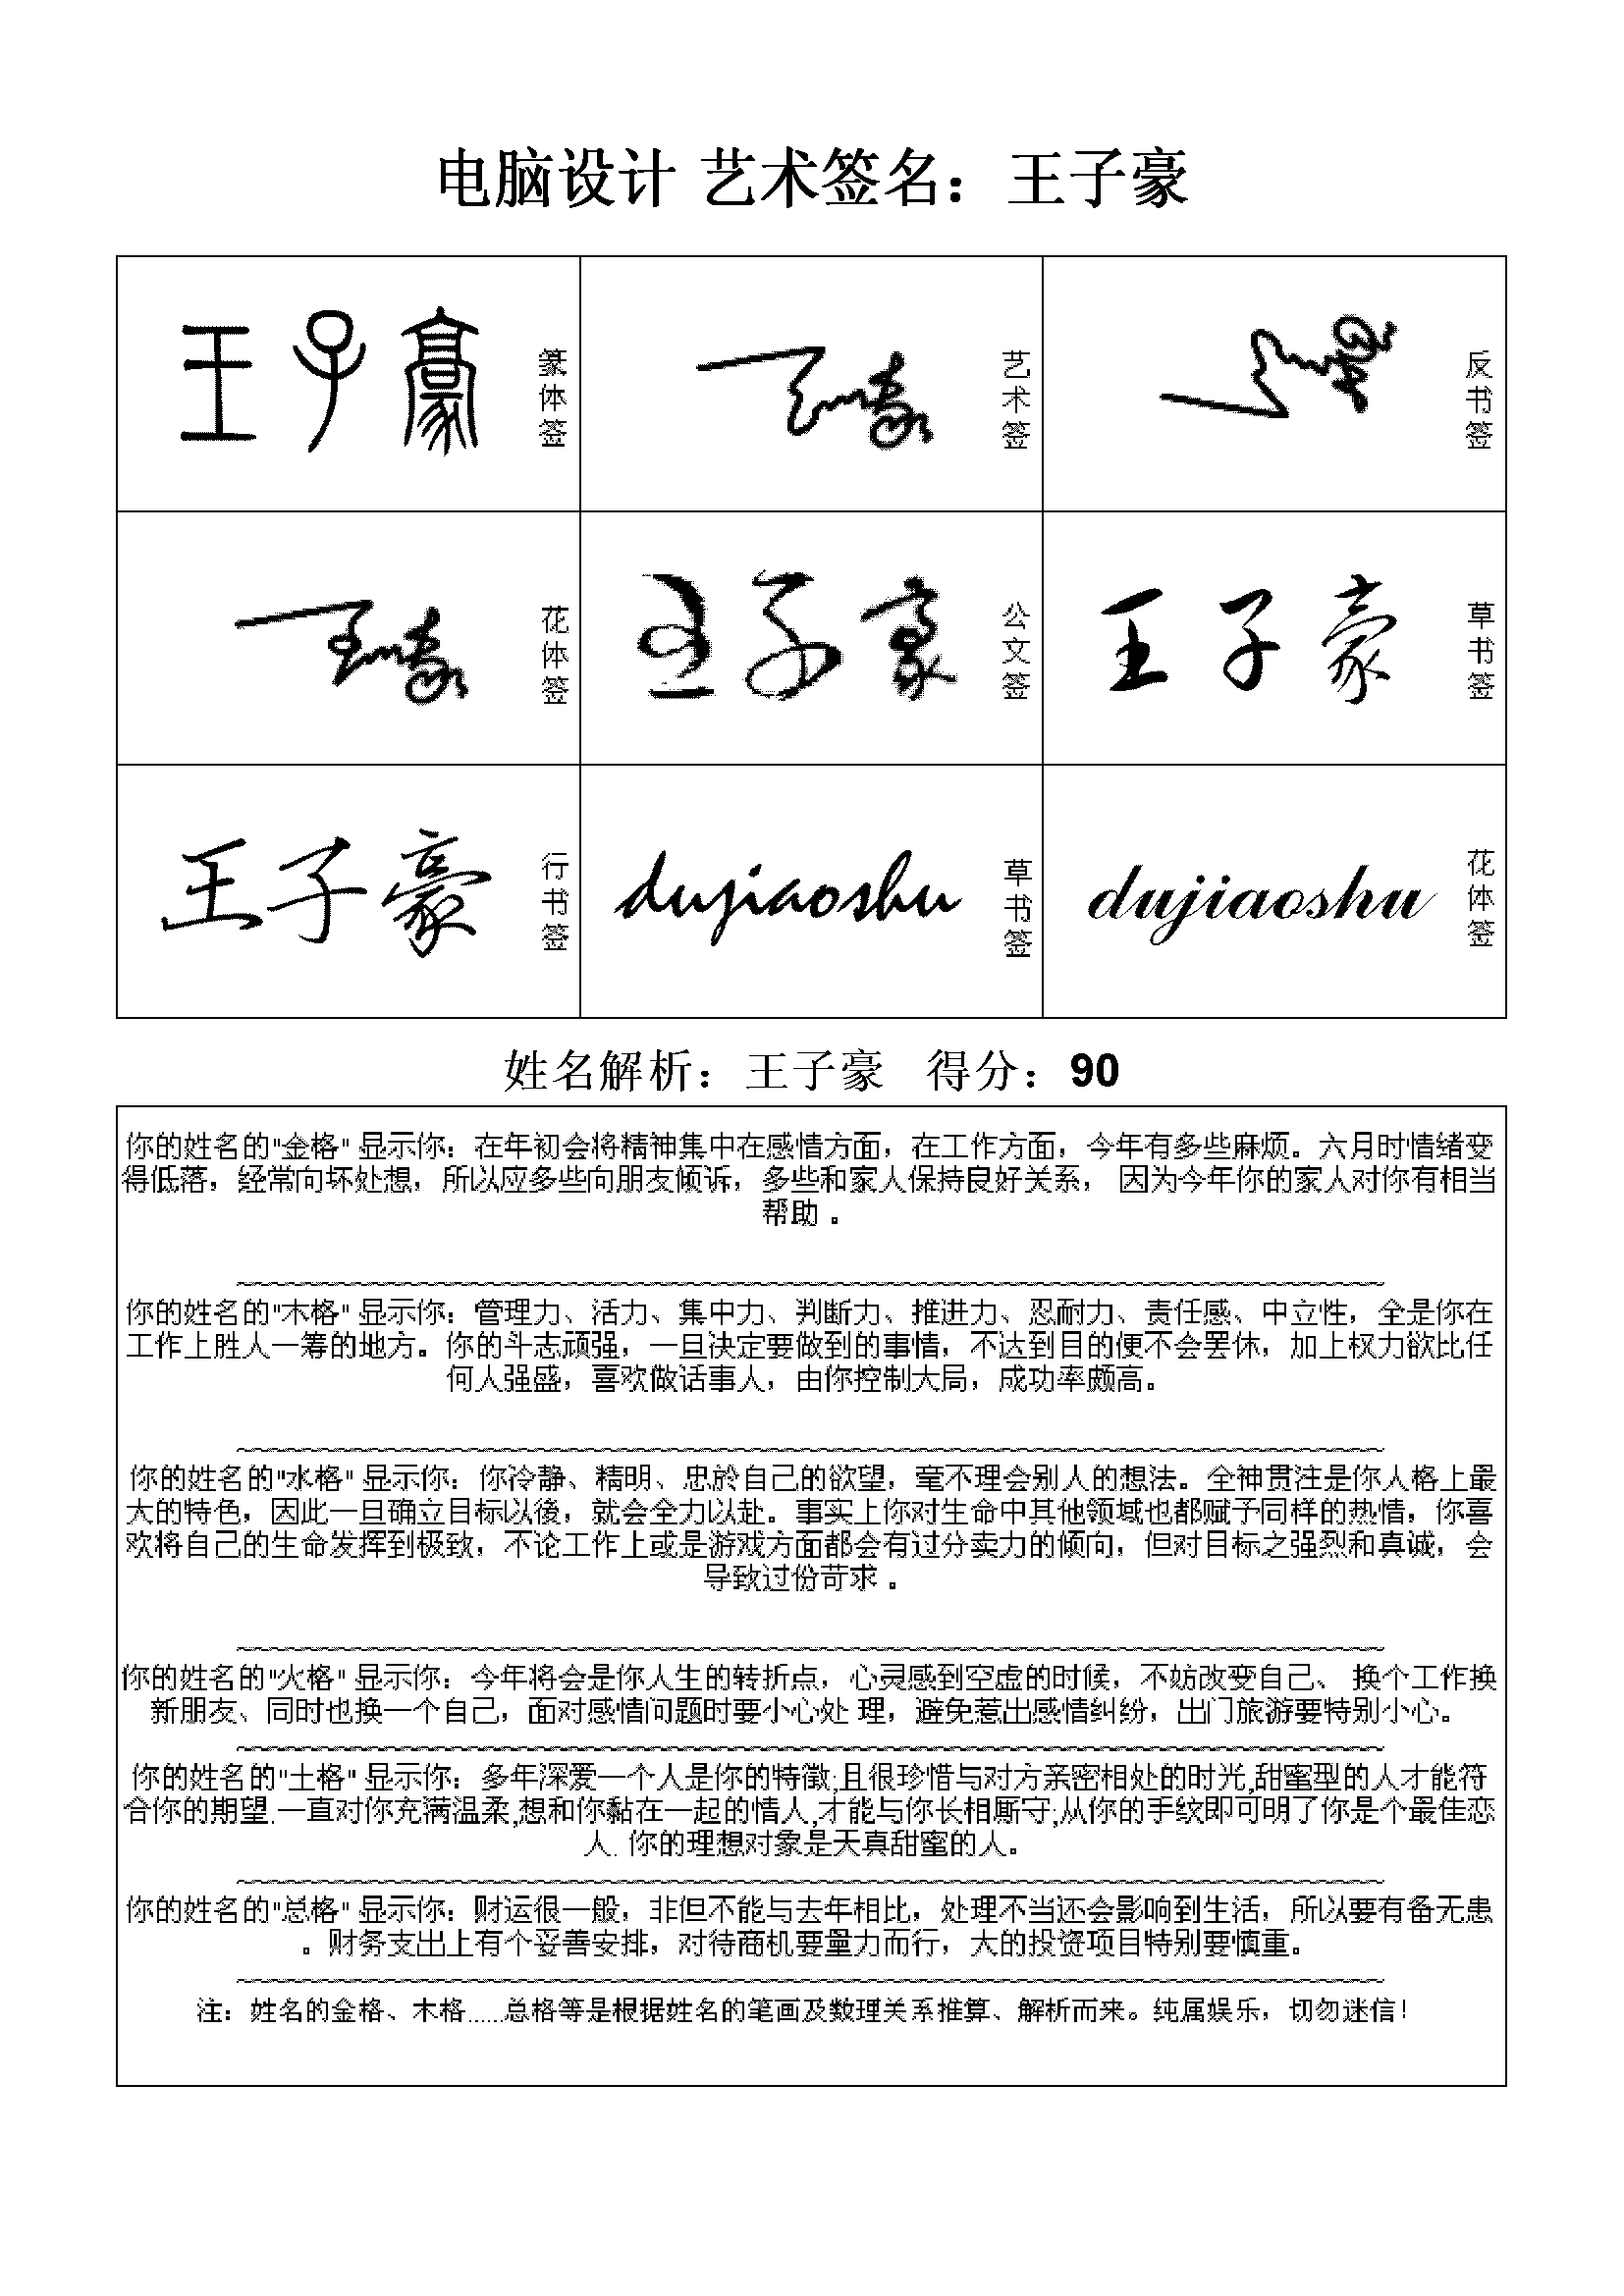 电脑设计 艺术签名：王子豪
王子豪 篆体签
王子豪 艺术签
王子豪 反书签
王子豪 花体签
王子豪 公文签
王子豪 草书签
王子豪 行书签
dujiaoshu 草书签
dujiaoshu 花体签
姓名解析：王子豪 得分：90
你的姓名的"金格" 显示你：在年初会将精神集中在感情方面，在工作方面，今年有多些麻烦。六月时情绪变
得低落，经常向坏处想，所以应多些向朋友倾诉，多些和家人保持良好关系， 因为今年你的家人对你有相当
帮助 。
~~~~~~~~~~~~~~~~~~~~~~~~~~~~~~~~~~~~~~~~
你的姓名的"木格" 显示你：管理力、活力、集中力、判断力、推进力、忍耐力、责任感、中立性，全是你在
工作上胜人一筹的地方。你的斗志顽强，一旦决定要做到的事情，不达到目的便不会罢休，加上权力欲比任
何人强盛，喜欢做话事人，由你控制大局，成功率颇高。
~~~~~~~~~~~~~~~~~~~~~~~~~~~~~~~~~~~~~~~~
你的姓名的"水格" 显示你：你冷静、精明、忠於自己的欲望，毫不理会别人的想法。全神贯注是你人格上最
大的特色，因此一旦确立目标以後，就会全力以赴。事实上你对生命中其他领域也都赋予同样的热情，你喜
欢将自己的生命发挥到极致，不论工作上或是游戏方面都会有过分卖力的倾向，但对目标之强烈和真诚，会
导致过份苛求 。
~~~~~~~~~~~~~~~~~~~~~~~~~~~~~~~~~~~~~~~~
你的姓名的"火格" 显示你：今年将会是你人生的转折点，心灵感到空虚的时候，不妨改变自己、 换个工作换
新朋友、同时也换一个自己，面对感情问题时要小心处 理，避免惹出感情纠纷，出门旅游要特别小心。
~~~~~~~~~~~~~~~~~~~~~~~~~~~~~~~~~~~~~~~~
你的姓名的"土格" 显示你：多年深爱一个人是你的特徵;且很珍惜与对方亲密相处的时光,甜蜜型的人才能符
合你的期望.一直对你充满温柔,想和你黏在一起的情人,才能与你长相厮守;从你的手纹即可明了你是个最佳恋
人. 你的理想对象是天真甜蜜的人。
~~~~~~~~~~~~~~~~~~~~~~~~~~~~~~~~~~~~~~~~
你的姓名的"总格" 显示你：财运很一般，非但不能与去年相比，处理不当还会影响到生活，所以要有备无患
。财务支出上有个妥善安排，对待商机要量力而行，大的投资项目特别要慎重。
~~~~~~~~~~~~~~~~~~~~~~~~~~~~~~~~~~~~~~~~
注：姓名的金格、木格......总格等是根据姓名的笔画及数理关系推算、解析而来。纯属娱乐，切勿迷信！